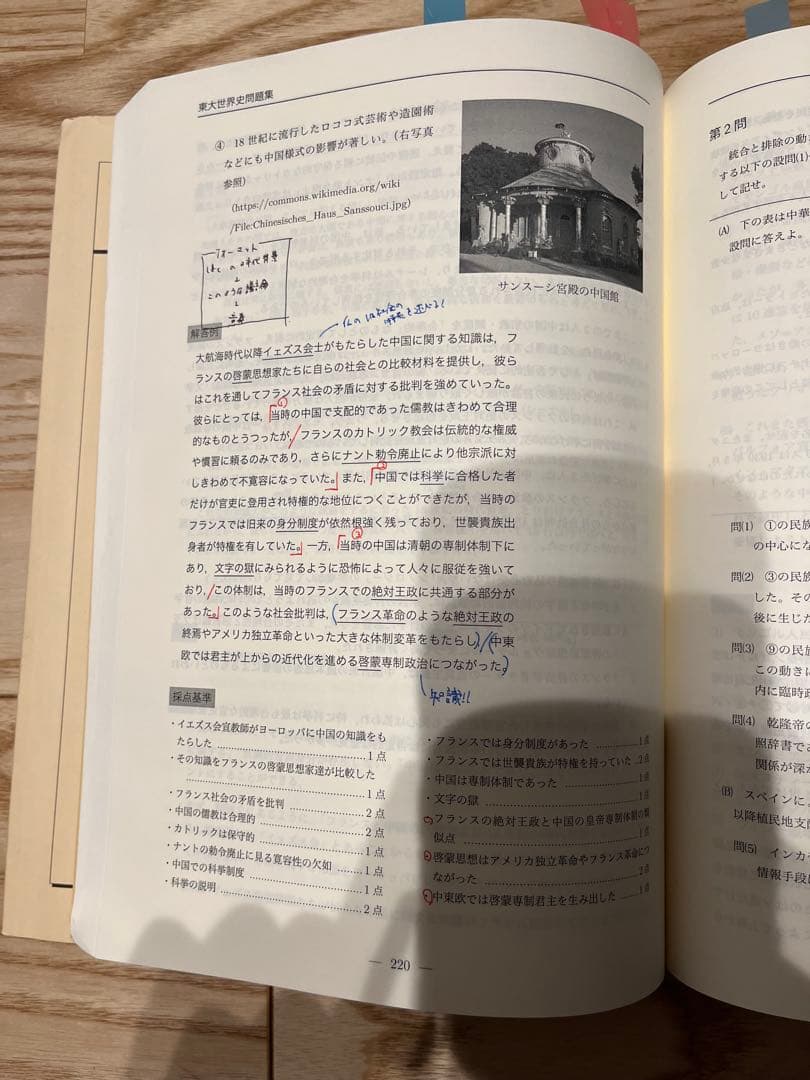 東大世界史問題集
④ 18世紀に流行したロココ式芸術や造園術
などにも中国様式の影響が著しい。(右写真
参照)
(https://commons.wikimedia.org/wiki
/File:Chinesisches_Haus_Sanssouci.jpg)
サンスーシ宮殿の中国館
フォーマット
↓
このような議論
↓
解答例
大航海時代以降イエズス会士がもたらした中国に関する知識は，フ
ランスの啓蒙思想家たちに自らの社会との比較材料を提供し，彼ら
はこれを通してフランス社会の矛盾に対する批判を強めていった。
彼らにとっては，①当時の中国で支配的であった儒教はきわめて合理
的なものとうつったが，フランスのカトリック教会は伝統的な権威
や慣習に頼るのみであり，さらにナント勅令廃止により他宗派に対
しきわめて不寛容になっていた。また，②中国では科挙に合格した者
だけが官吏に登用され特権的な地位につくことができたが，当時の
フランスでは旧来の身分制度が依然根強く残っており，世襲貴族出
身者が特権を有していた。一方，③当時の中国は清朝の専制体制下に
あり，文字の獄にみられるように恐怖によって人々に服従を強いて
おり，この体制は，当時のフランスでの絶対王政に共通する部分が
あった。このような社会批判は，フランス革命のような絶対王政の
終焉やアメリカ独立革命といった大きな体制変革をもたらし，中東
欧では君主が上からの近代化を進める啓蒙専制政治につながった。
知識!!
採点基準
・イエズス会宣教師がヨーロッパに中国の知識をも
たらした ……1点
・その知識をフランスの啓蒙思想家達が比較した
……1点
・フランス社会の矛盾を批判 ……2点
・中国の儒教は合理的 ……2点
・カトリックは保守的 ……1点
・ナントの勅令廃止に見る寛容性の欠如 ……1点
・中国での科挙制度 ……1点
・科挙の説明 ……2点
・フランスでは身分制度があった ……1点
・フランスでは世襲貴族が特権を持っていた ..2点
・中国は専制体制であった ……1点
・文字の獄 ……1点
・フランスの絶対王政と中国の皇帝専制体制の類
似点 ……1点
・啓蒙思想はアメリカ独立革命やフランス革命につ
ながった ……2点
・中東欧では啓蒙専制君主を生み出した ……1点
— 220 —
第2問
統合と排除の動
する以下の設問(1)
して記せ。
(A) 下の表は中華
設問に答えよ。
問(1) ①の民族
の中心にな
問(2) ③の民族
した。その
後に生じた
問(3) ⑨の民族
この動きに
内に臨時政
問(4) 乾隆帝の
照辞書であ
関係が深か
(B) スペインに
以降植民地支配
問(5) インカ
情報手段